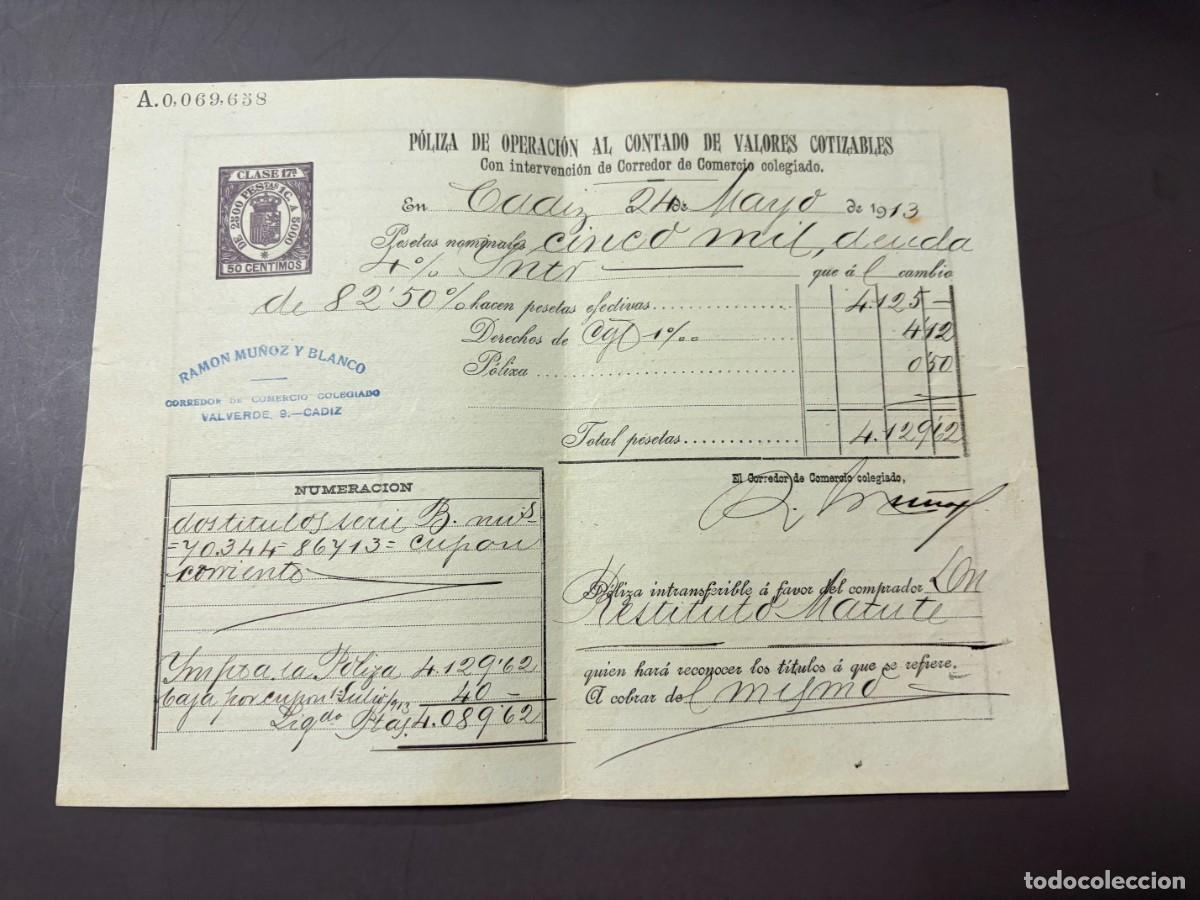 A.0,069,658
PÓLIZA DE OPERACIÓN AL CONTADO DE VALORES COTIZABLES
Con intervención de Corredor de Comercio colegiado.
CLASE 17ª
DE 2500 PESTAS 1 C. A 5000
50 CENTIMOS
En Cadiz á 24 de Mayo de 1913
Pesetas nominales cinco mil, deuda
4% Intr que á l cambio
de 82'50% hacen pesetas efectivas 4.125 —
Derechos de 1‰ 4 12
Póliza 0 50
Total pesetas 4.129 62
RAMON MUÑOZ Y BLANCO
CORREDOR DE COMERCIO COLEGIADO
VALVERDE, 9.—CADIZ
El Corredor de Comercio colegiado,
R. Muñoz
NUMERACION
dos titulos serie B. nums
=70.344=86713= cupon
corriente
Impta la Póliza 4.129'62
baja por cupon 1º Julio 1913 40 —
Liqdo Ptas. 4.089'62
Póliza intransferible á favor del comprador Don
Restituto Matute
quien hará reconocer los títulos á que se refiere.
A cobrar del mismo
todocoleccion